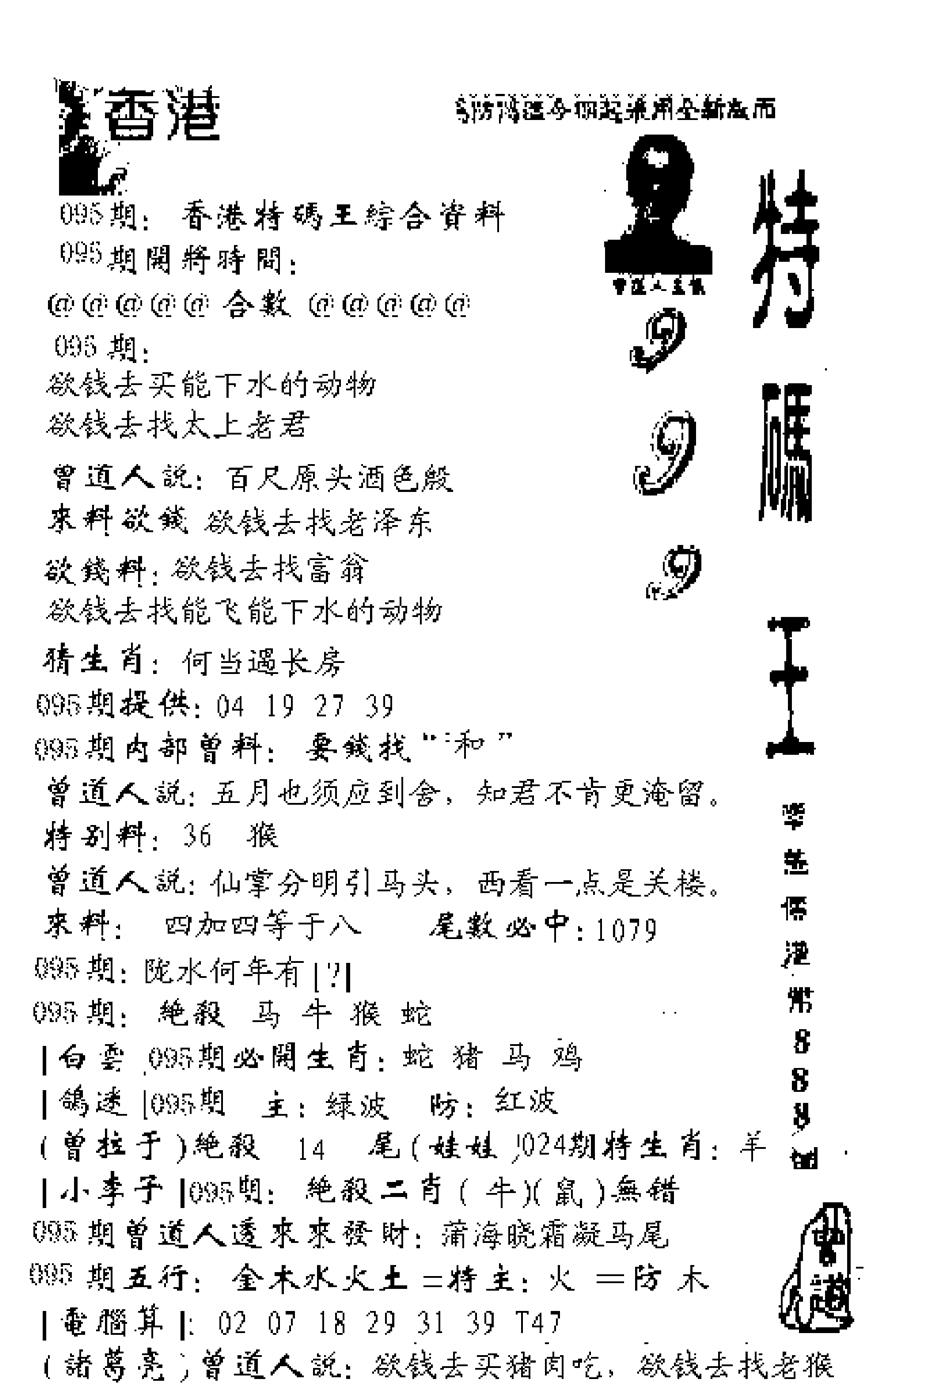 香港
095期：香港特碼王綜合資料
095期開將時間：
@@@@@合數@@@@@
095期：
欲钱去买能下水的动物
欲钱去找太上老君
曾道人説：百尺原头酒色殷
來料欲錢 欲钱去找老泽东
欲錢料：欲钱去找富翁
欲钱去找能飞能下水的动物
猜生肖：何当遇长房
095期提供：04 19 27 39
095期内部曾料：要錢找“ 和”
曾道人説：五月也须应到舍，知君不肯更淹留。
特别料：36 猴
曾道人説：仙掌分明引马头，西看一点是关楼。
來料： 四加四等于八 尾數必中：1079
095期：陇水何年有|?|
095期：絶殺 马 牛 猴 蛇
|白雲 095期必開生肖：蛇 猪 马 鸡
|鴿迷|095期 主：绿波 防：红波
(曾拉于)絶殺 14 尾(娃娃)024期特生肖：羊
|小李子|095期：絶殺二肖(牛)(鼠)無错
095期曾道人透來來發財：蒲海晓霜凝马尾
095期五行：金木水火土=特主：火 =防 木
|電腦算|：02 07 18 29 31 39 T47
(諸葛亮)曾道人説：欲钱去买猪肉吃，欲钱去找老猴
特碼王
曾道人
9
9
9
港幣888
曾道人